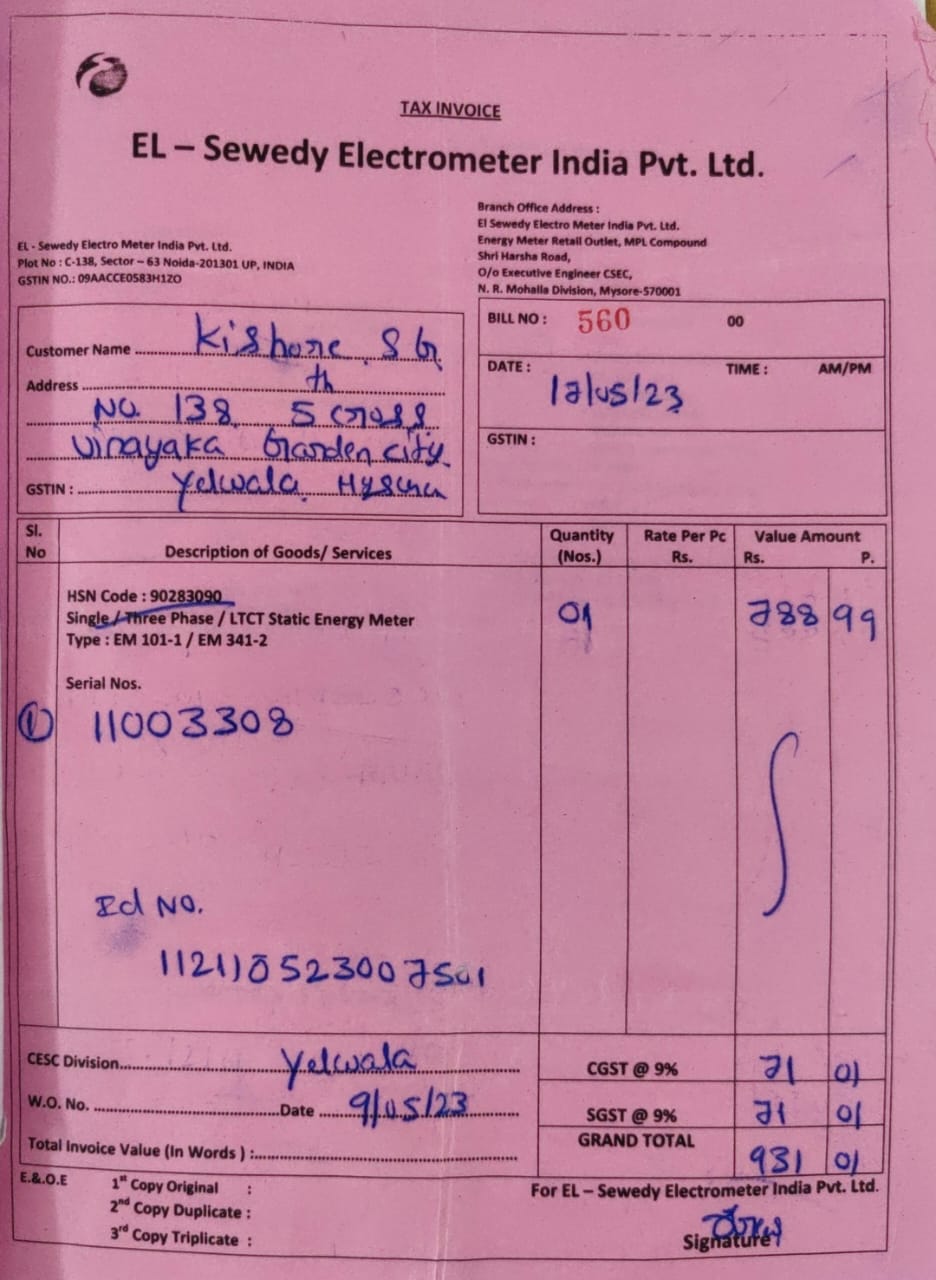 TAX INVOICE
EL – Sewedy Electrometer India Pvt. Ltd.
EL - Sewedy Electro Meter India Pvt. Ltd.
Plot No : C-138, Sector – 63 Noida-201301 UP, INDIA
GSTIN NO.: 09AACCE0583H1ZO
Branch Office Address :
El Sewedy Electro Meter India Pvt. Ltd.
Energy Meter Retail Outlet, MPL Compound
Shri Harsha Road,
O/o Executive Engineer CSEC,
N. R. Mohalla Division, Mysore-570001
Customer Name Kishore S G
Address
No. 138, 5th cross
Vinayaka Garden city
GSTIN : Yelwala
BILL NO : 560 00
DATE : 17/05/23 TIME : AM/PM
GSTIN :
Sl. No Description of Goods/ Services Quantity (Nos.) Rate Per Pc Rs. Value Amount Rs. P.
HSN Code : 90283090
Single / Three Phase / LTCT Static Energy Meter 01 788 99
Type : EM 101-1 / EM 341-2
Serial Nos.
① 11003308
Id NO.
CESC Division Yelwala CGST @ 9% 71 01
W.O. No. Date 9/05/23 SGST @ 9% 71 01
Total Invoice Value (In Words ) : GRAND TOTAL 931 01
E.&.O.E 1st Copy Original :
2nd Copy Duplicate :
3rd Copy Triplicate :
For EL – Sewedy Electrometer India Pvt. Ltd.
Signature